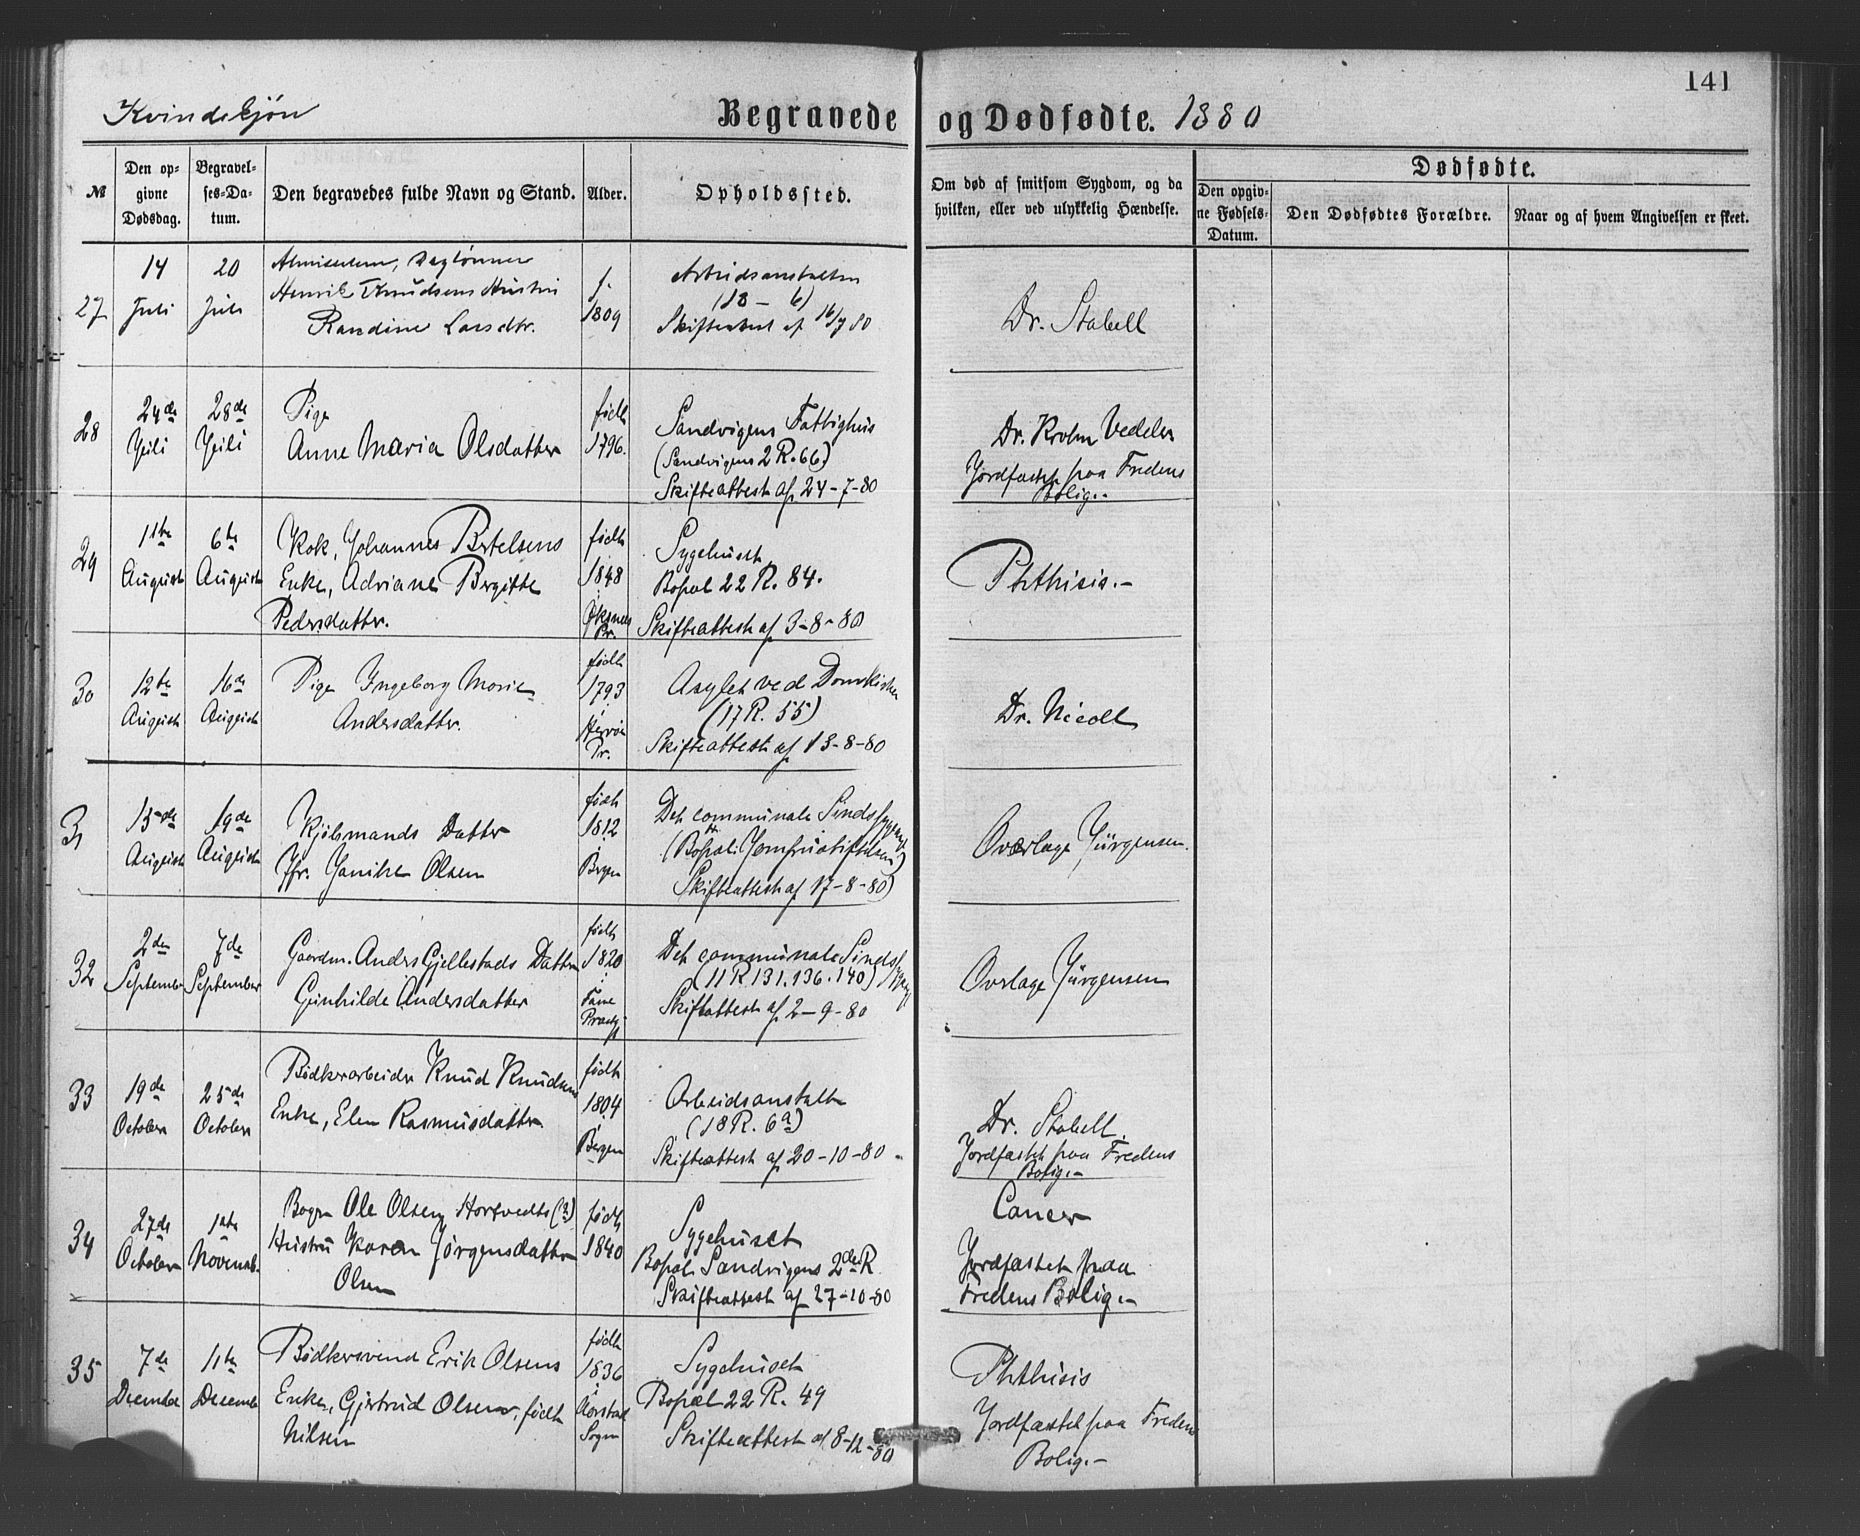 141
Kvindekjøn
Begravede og Dødfødte. 1880
№
Den opgivne Dødsdag.
Begravelses-Datum.
Den begravedes fulde Navn og Stand.
Alder.
Opholdssted.
Om død af smitsom Sygdom, og da hvilken, eller ved ulykkelig Hændelse.
Dødfødte.
Den opgivne Fødsels-Datum.
Den Dødfødtes Forældre.
Naar og af hvem Angivelsen er skeet.
27
14 Juli
20 Juli
Almisselem, Daglønner
Henrik Knudsens Hustru
Randine Larsdtr.
f. 1809
Arbeidsanstalten
(18 – 6)
Skifteattest af 16/7 80
Dr. Stabell
28
24de Juli
28de Juli
Pige
Anne Maria Olsdatter
født 1796.
Sandvigens Fattighus
(Sandvigens 2 R. 66)
Skifteattest af 24-7-80
Dr. Krohn Vedeler
Jordfæstet paa Fredens
Bolig.-
29
11te August
6te August
Kok, Johannes Bertelsens
Enke, Adriane Birgitte
Pedersdatter.
født 1848
Øksnes Pr.
Sygehuset
Bopæl 22 R. 84.
Skifteattest af 3-8-80
Phthisis.-
30
12te August
16de August
Pige Ingeborg Marie
Andersdatter.
født 1793
Herrø Pr.
Asylet ved Domkirken
(17 R. 55)
Skifteattest af 13-8-80
Dr. Nicoll
31
13de August
19de August
Kjøbmands Datter
Jfr. Janike Olsen
født 1812
Bergen
Det communale Sindssygeasyl
(Bopæl: Jomfrustiftelsen)
Skifteattest af 17-8-80)
Overlæge Jürgensen.
32
2den September
7de September
Gaardm. Anders Gjellestads Datter
Gunhilde Andersdatter
født 1820
Fane Præstgj
Det communale Sindssygeasyl
(11 R 131.136.140)
Skifteattest af 2-9-80
Overlæge Jürgensen
33
19de October
25de October
Bødkerarbeider Knud Knudsens
Enke, Elen Rasmusdatter
født 1804
Bergen
Arbeidsanstalten
(18 R. 6a)
Skifteattest af 20-10-80
Dr. Stabell.
Jordfæstet paa Fredens
Bolig.-
34
27de October
1ste Novemb.
Bager Ole Olsen Hortvedts (?)
Hustru Karen Jørgensdatter
Olsen
født 1840
Sygehuset
Bopæl Sandvigens 2den R
Skifteattest af 27-10-80
Cancer
Jordfæstet paa
Fredens Bolig.-
35
7de December
11te December
Bødkersvend Erik Olsens
Enke, Gjertrud Olsen, født
Nilsen
født 1836
Aarstad Sogn
Sygehuset
Bopæl 22 R. 49
Skifteattest af 8-12-80
Phthisis
Jordfæstet paa Fredens
Bolig.-